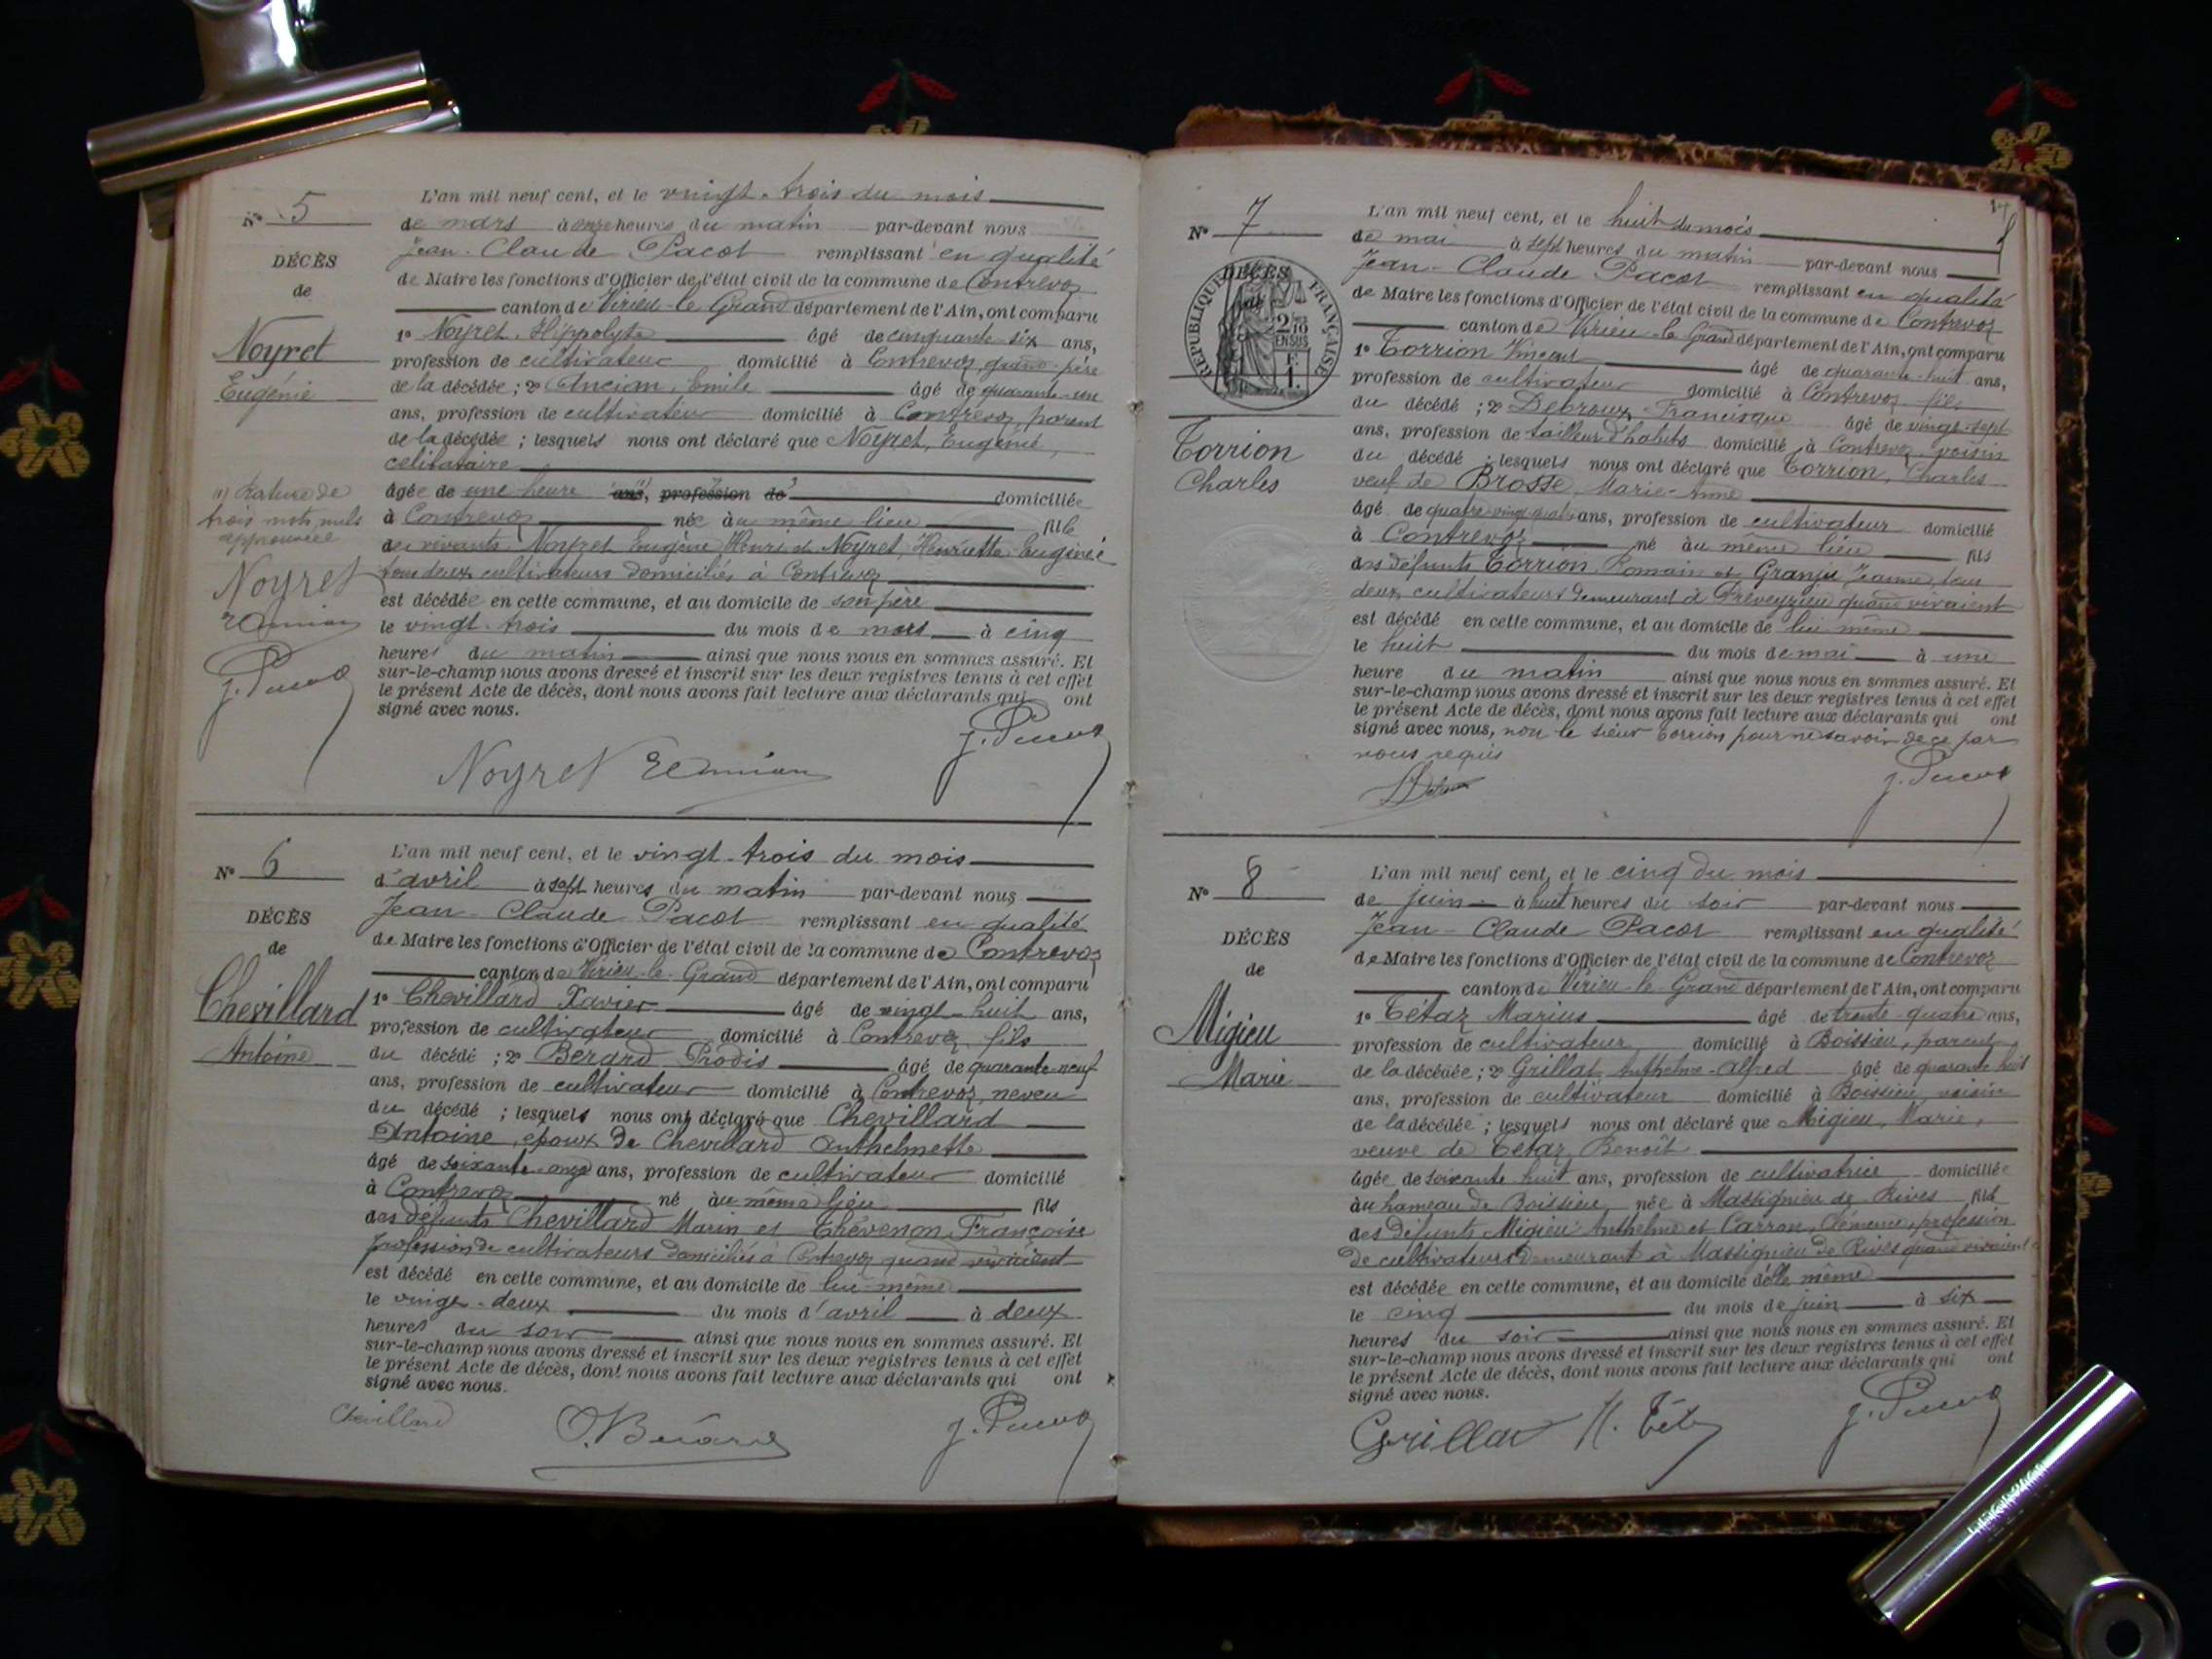 N° 5
DÉCÈS
de
Noyret
Eugénie
L'an mil neuf cent, et le vingt-trois du mois
de mars à onze heures du matin par-devant nous
Jean-Claude Pacot remplissant en qualité
de Maire les fonctions d'Officier de l'état civil de la commune de Contrevoz
canton de Virieu-le-Grand département de l'Ain, ont comparu
1° Noyret, Hippolyte âgé de cinquante-six ans,
profession de cultivateur domicilié à Contrevoz, grand-père
de la décédée ; 2° Ancian, Emile âgé de quarante-un
ans, profession de cultivateur domicilié à Contrevoz, parent
de la décédée ; lesquels nous ont déclaré que Noyret, Eugénie,
célibataire
âgée de une heure ans, profession de domiciliée
à Contrevoz née au même lieu fille
des vivants Noyret Eugène Henri et Noyret, Henriette Eugénie
tous deux cultivateurs domiciliés à Contrevoz
est décédée en cette commune, et au domicile de son père
le vingt-trois du mois de mars à cinq
heures du matin ainsi que nous nous en sommes assuré. Et
sur-le-champ nous avons dressé et inscrit sur les deux registres tenus à cet effet
le présent Acte de décès, dont nous avons fait lecture aux déclarants qui ont
signé avec nous.
(1) Rature de
trois mots nuls
approuvée
Noyret
J. Pacot
Noyret J. Pacot
N° 6
DÉCÈS
de
Chevillard
Antoine
L'an mil neuf cent, et le vingt-trois du mois
d'avril à sept heures du matin par-devant nous
Jean-Claude Pacot remplissant en qualité
de Maire les fonctions d'Officier de l'état civil de la commune de Contrevoz
canton de Virieu-le-Grand département de l'Ain, ont comparu
1° Chevillard Xavier âgé de vingt-huit ans,
profession de cultivateur domicilié à Contrevoz fils
du décédé ; 2° Berard Prodis âgé de quarante-neuf
ans, profession de cultivateur domicilié à Contrevoz, neveu
du décédé ; lesquels nous ont déclaré que Chevillard
Antoine, époux de Chevillard Anthelmette
âgé de soixante-onze ans, profession de cultivateur domicilié
à Contrevoz né au même lieu fils
des défunts Chevillard Marin et Thévenon Françoise
profession de cultivateurs domiciliés à Contrevoz quand vivaient
est décédé en cette commune, et au domicile de lui-même
le vingt-deux du mois d'avril à deux
heures du soir ainsi que nous nous en sommes assuré. Et
sur-le-champ nous avons dressé et inscrit sur les deux registres tenus à cet effet
le présent Acte de décès, dont nous avons fait lecture aux déclarants qui ont
signé avec nous.
Chevillard P. Bérard J. Pacot
17
N° 7
DÉCÈS
RÉPUBLIQUE FRANÇAISE
2/10
EN SUS
F.
1.
Torrion
Charles
L'an mil neuf cent, et le huit du mois
de mai à sept heures du matin par-devant nous
Jean-Claude Pacot remplissant en qualité
de Maire les fonctions d'Officier de l'état civil de la commune de Contrevoz
canton de Virieu-le-Grand département de l'Ain, ont comparu
1° Torrion Vincent âgé de quarante-huit ans,
profession de cultivateur domicilié à Contrevoz fils
du décédé ; 2° Debroux Francisque âgé de vingt-sept
ans, profession de tailleur d'habits domicilié à Contrevoz voisin
du décédé ; lesquels nous ont déclaré que Torrion, Charles
veuf de Brosse, Marie-Anne
âgé de quatre-vingt-quatre ans, profession de cultivateur domicilié
à Contrevoz né au même lieu fils
des défunts Torrion Romain et Granju Jeanne, tous
deux cultivateurs demeurant à Preveyzieu quand vivaient
est décédé en cette commune, et au domicile de lui même
le huit du mois de mai à une
heure du matin ainsi que nous nous en sommes assuré. Et
sur-le-champ nous avons dressé et inscrit sur les deux registres tenus à cet effet
le présent Acte de décès, dont nous avons fait lecture aux déclarants qui ont
signé avec nous, non le sieur Torrion pour ne savoir de ce par
nous requis
J. Pacot
N° 8
DÉCÈS
de
Migieu
Marie
L'an mil neuf cent, et le cinq du mois
de juin à huit heures du soir par-devant nous
Jean-Claude Pacot remplissant en qualité
de Maire les fonctions d'Officier de l'état civil de la commune de Contrevoz
canton de Virieu-le-Grand département de l'Ain, ont comparu
1° Tétaz Marius âgé de trente-quatre ans,
profession de cultivateur domicilié à Boissieu, parent
de la décédée ; 2° Grillat Anthelme-Alfred âgé de quarante huit
ans, profession de cultivateur domicilié à Boissieu, voisin
de la décédée ; lesquels nous ont déclaré que Migieu, Marie,
veuve de Tétaz Benoît
âgée de soixante huit ans, profession de cultivatrice domiciliée
au hameau de Boissieu, née à Massignieu de Rives fille
des défunts Migieu Anthelme et Carron, Clémence, profession
de cultivateurs demeurant à Massignieu de Rives quand vivaient
est décédée en cette commune, et au domicile d'elle même
le cinq du mois de juin à six
heures du soir ainsi que nous nous en sommes assuré. Et
sur-le-champ nous avons dressé et inscrit sur les deux registres tenus à cet effet
le présent Acte de décès, dont nous avons fait lecture aux déclarants qui ont
signé avec nous.
Grillat M. Tétaz J. Pacot